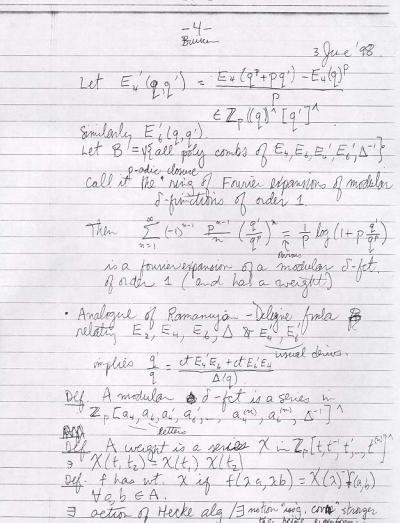 -4-
3 June '98
Let E₄'(q,q') = E₄(qᵖ+pq') - E₄(q)ᵖ / p
∈ ℤₚ((q))^[q']^
Similarly E₆'(q,q').
Let B = {all poly combs of E₄,E₆,E₄',E₆',Δ⁻¹}
p-adic closure
call it the ring of Fourier expansions of modular
δ-functions of order 1.
Then ∑_{n=1}^∞ (-1)ⁿ⁻¹ pⁿ⁻¹/n (q'/qᵖ)ⁿ = 1/p log(1+p q'/qᵖ)
is a fourier expansion of a modular δ-fct.
of order 1 (and has a weight)
• Analogue of Ramanujan-Deligne fmla
relating E₂, E₄, E₆, Δ & E₄', E₆'
usual derivs.
implies q'/q = ct E₄'E₆ + ct E₆'E₄ / Δ(q)
Def. A modular δ-fct is a series in
ℤₚ[a₄, a₆, a₄', a₆',..., a₄⁽ⁿ⁾, a₆⁽ⁿ⁾, Δ⁻¹]^
letters
Def. A weight is a series χ in ℤₚ[t,t⁻¹,t',..,t⁽ⁿ⁾]^
∋ χ(t₁t₂) = χ(t₁) χ(t₂)
Def. f has wt. χ if f(λa,λb) = χ(λ) f(a,b)
∀a,b ∈ A.
∃ action of Hecke alg / ∃ notion "isog. cov" stronger